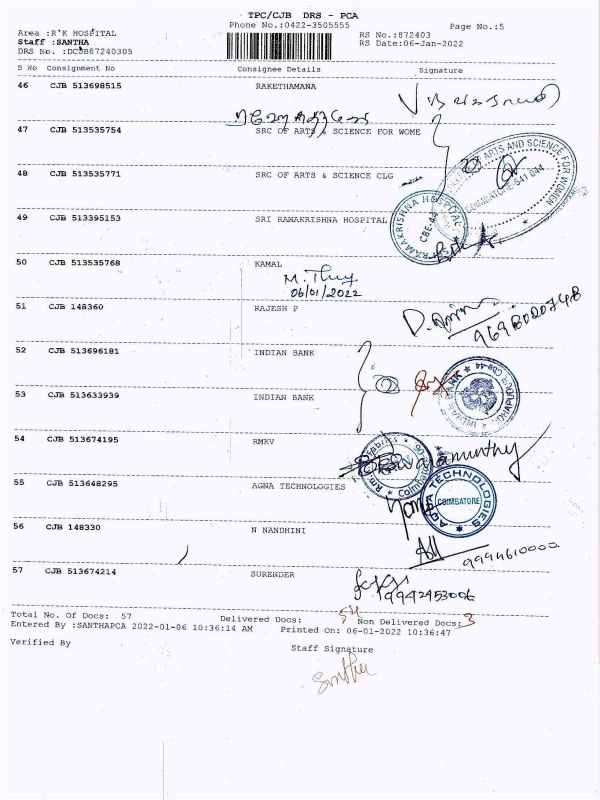 TPC/CJB DRS - PCA
Phone No.:0422-3505555
Page No.:5
Area :R'K HOSPITAL
RS No.:872403
Staff :SANTHA
RS Date:06-Jan-2022
DRS No. :DCJB87240305
S No Consignment No Consignee Details Signature
46 CJB 513698515 RAKETHAMANA
47 CJB 513535754 SRC OF ARTS & SCIENCE FOR WOME
48 CJB 513535771 SRC OF ARTS & SCIENCE CLG
ARTS AND SCIENCE FOR WOMEN
COIMBATORE-641 044
49 CJB 513395153 SRI RAMAKRISHNA HOSPITAL
RAMAKRISHNA HOSPITAL
CBE-44
50 CJB 513535768 KAMAL
06/01/2022
51 CJB 148360 RAJESH P
52 CJB 513696181 INDIAN BANK
53 CJB 513633939 INDIAN BANK
INDIAN BANK
54 CJB 513674195 RMKV
55 CJB 513648295 AGNA TECHNOLOGIES
AGNA TECHNOLOGIES
COIMBATORE
56 CJB 148330 N NANDHINI
9994610000
57 CJB 513674214 SURENDER
9942453006
Total No. Of Docs: 57 Delivered Docs: 54 Non Delivered Docs: 3
Entered By :SANTHAPCA 2022-01-06 10:36:14 AM Printed On: 06-01-2022 10:36:47
Verified By
Staff Signature